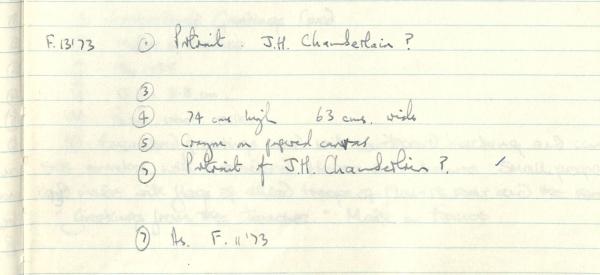 F.13'73 ① Portrait. J.H. Chamberlain?
③
④ 74 cms high 63 cms. wide
⑤ Crayon on prepared canvas
⑦ Portrait of J.H. Chamberlain?.
⑦ As. F. 11'73